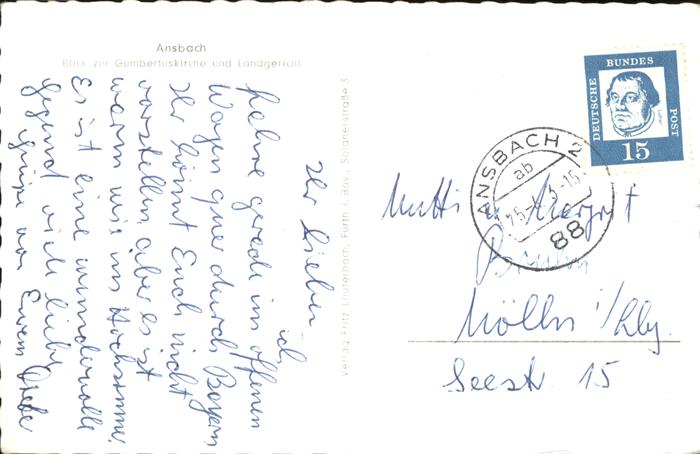 Ansbach
Blick zur Gumbertuskirche und Landgericht
Ihr Lieben
ich
fahre gerade im offenen
Wagen quer durch Bayern
Ihr könnt Euch nicht
vorstellen aber es ist
warm wie im Hochsommer.
Es ist eine wundervolle
Gegend viele liebe
Grüße von Eurem
Verlag Fritz Lauterbach, Fürth i. Bay., Salznerstraße 3
DEUTSCHE BUNDES POST
Luther
15
ANSBACH 2
ab
88
Mutti u. Margrit
Mölln i/Lbg.
Seestr. 15